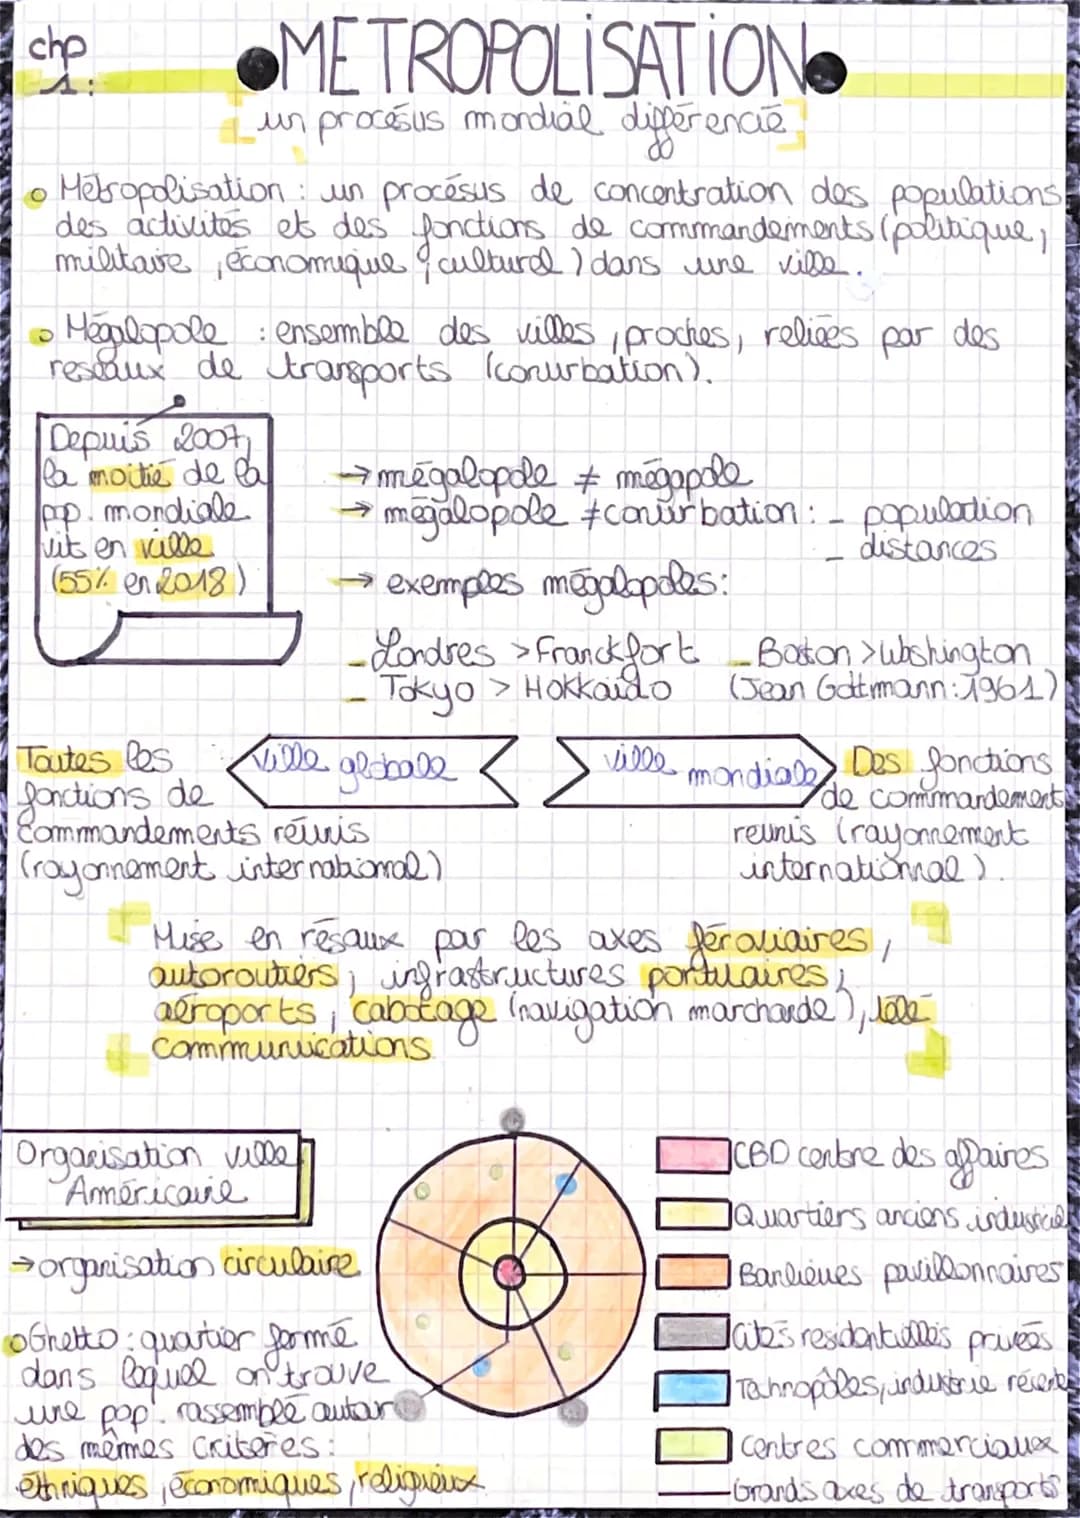 chp
1:
METROPOLISATION
un procésus mondial différencié
Métropolisation : un procésus de concentration des populations
des activités et des fonctions de commandements (politique,
militaire, économique & culturel) dans une ville.
Mégalopole : ensemble des villes, proches, reliées par des
reseaux de transports (conurbation).
Depuis 2007,
la moitié de la
pop. mondiale
vit en ville
(55% en 2018)
→ mégalopole ≠ mégapole
→ mégalopole ≠ conurbation : - population
- distances
→ exemples mégalopoles:
- Londres > Franckfort - Boston > Washington
- Tokyo > Hokkaido (Jean Gottmann: 1961)
Toutes les
fonctions de
commandements réunis
(rayonnement international)
ville globale
ville mondiale
Des fonctions
de commandement
reunis (rayonnement
internationnal).
Mise en résaux par les axes féroviaires,
autoroutiers, infrastructures portulaires,
aéroports, cabotage (navigation marchande), télé
communications
Organisation ville
Américaine
→ organisation circulaire
Ghetto : quartier fermé
dans lequel on trouve
une pop. rassemblé autour
des mêmes critères :
éthniques, économiques, religieux.
CBD centre des affaires
Quartiers anciens industriel
Banlieues pavillonnaires
Cités residentielles privées
Technopôles, industrie récente
Centres commerciaux
Grands axes de transports